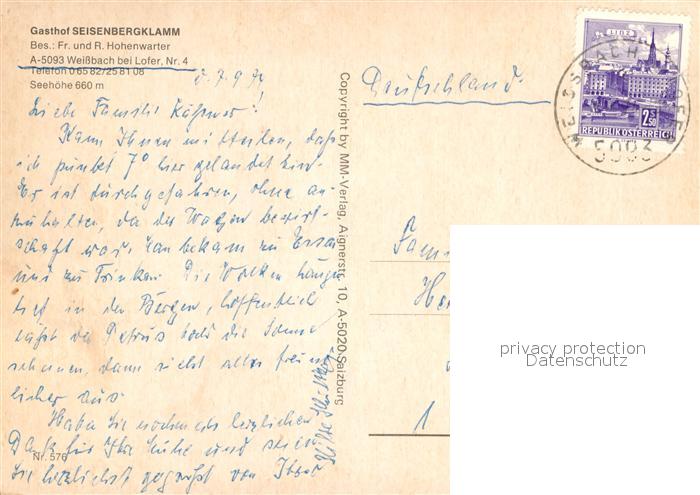 Gasthof SEISENBERGKLAMM
Bes.: Fr. und R. Hohenwarter
A-5093 Weißbach bei Lofer, Nr. 4
Telefon 0 65 82/25 81 08
Seehöhe 660 m
Liebe Familie
Kann Ihnen mitteilen, daß
ich punkt 7° hier gelandet bin.
Er ist durchgefahren, ohne an-
zuhalten, da der Wagen bewirt-
schaft war, man bekam zu Essen
und zu Trinken. Die Wolken hängen
tief in den Bergen, hoffentlich
läßt der Petrus bald die Sonne
scheinen, dann sieht alles freund-
licher aus.
Habe Sie nochmals herzlichen
Dank für Ihre Mühe und seien
Sie herzlichst gegrüßt von Ihrer
Nr. 576
Copyright by MM-Verlag, Aignerstr. 10, A-5020 Salzburg
Deutschland
LINZ
2S50
REPUBLIK ÖSTERREICH
5093
Fam
He
1
privacy protection
Datenschutz